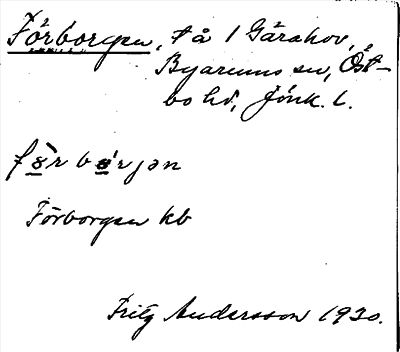 Förborgen, tå 1 Gärahov,
Byarums sn, Öst-
bo hd, Jönk. l.
fö̀rbo̱rjən
Förborgen kb
Fritz Andersson 1930.